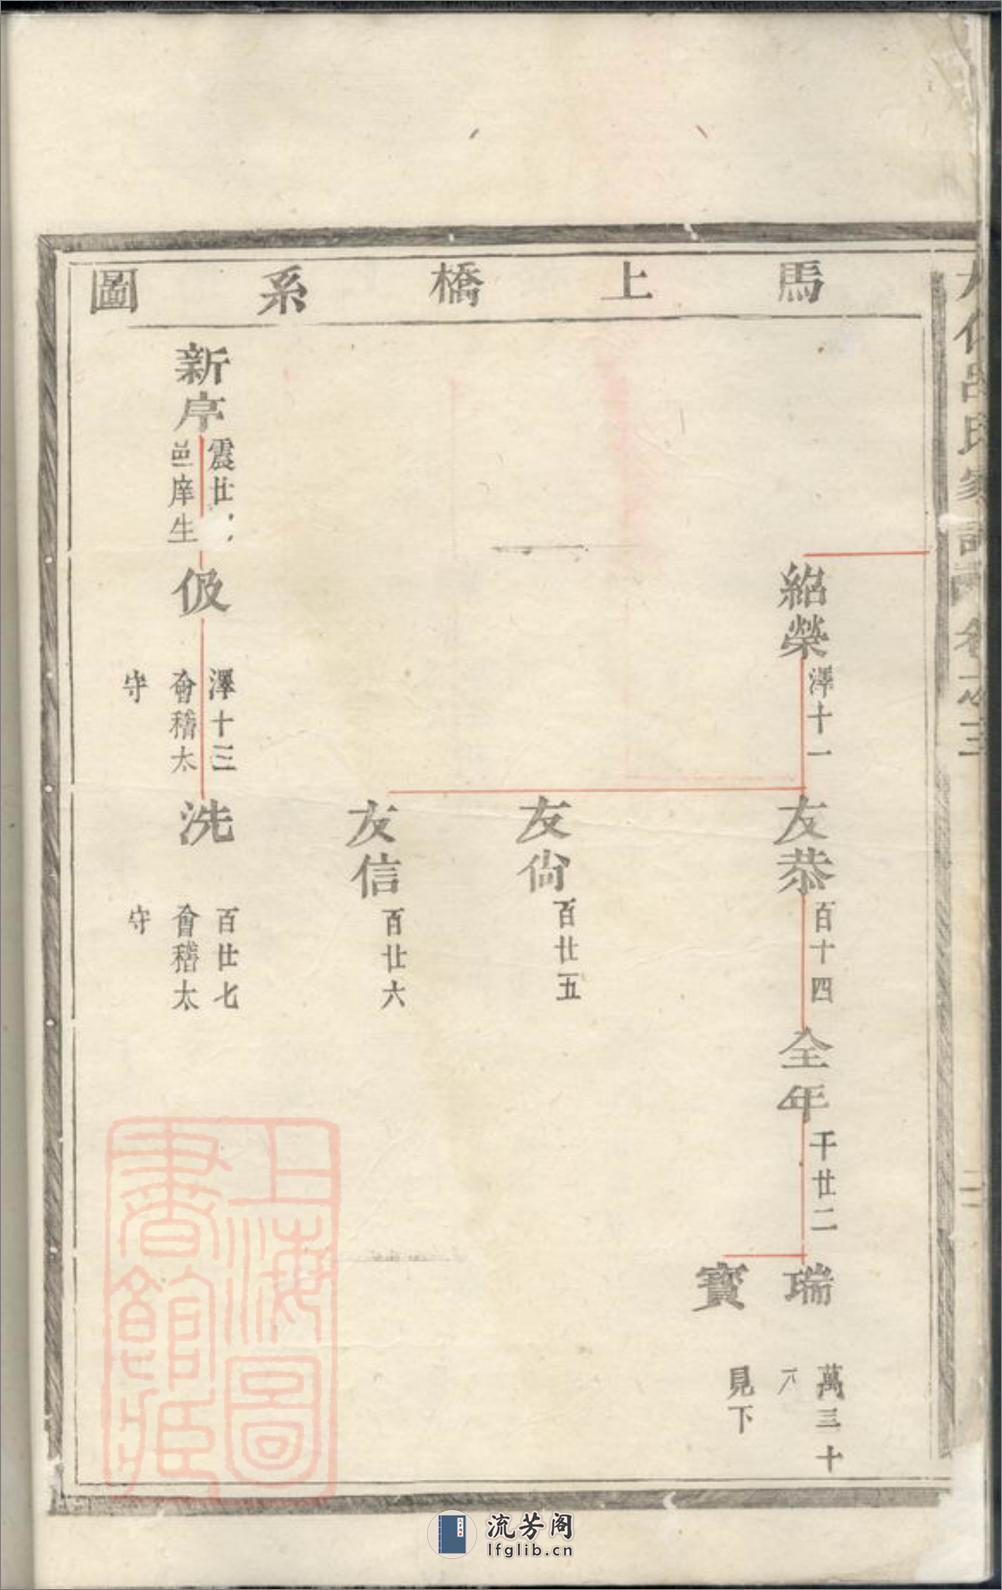 馬上橋系圖
呂氏家譜卷之三
二
紹榮
澤十一
友恭
百十四
全年
千廿二
瑞
萬三十
六
寶
見下
友尙
百廿五
友信
百廿六
新序
震廿
邑庠生
伋
澤十三
會稽太
守
洗
百廿七
會稽太
守
上海圖
書館藏
流芳阁
lfglib.cn